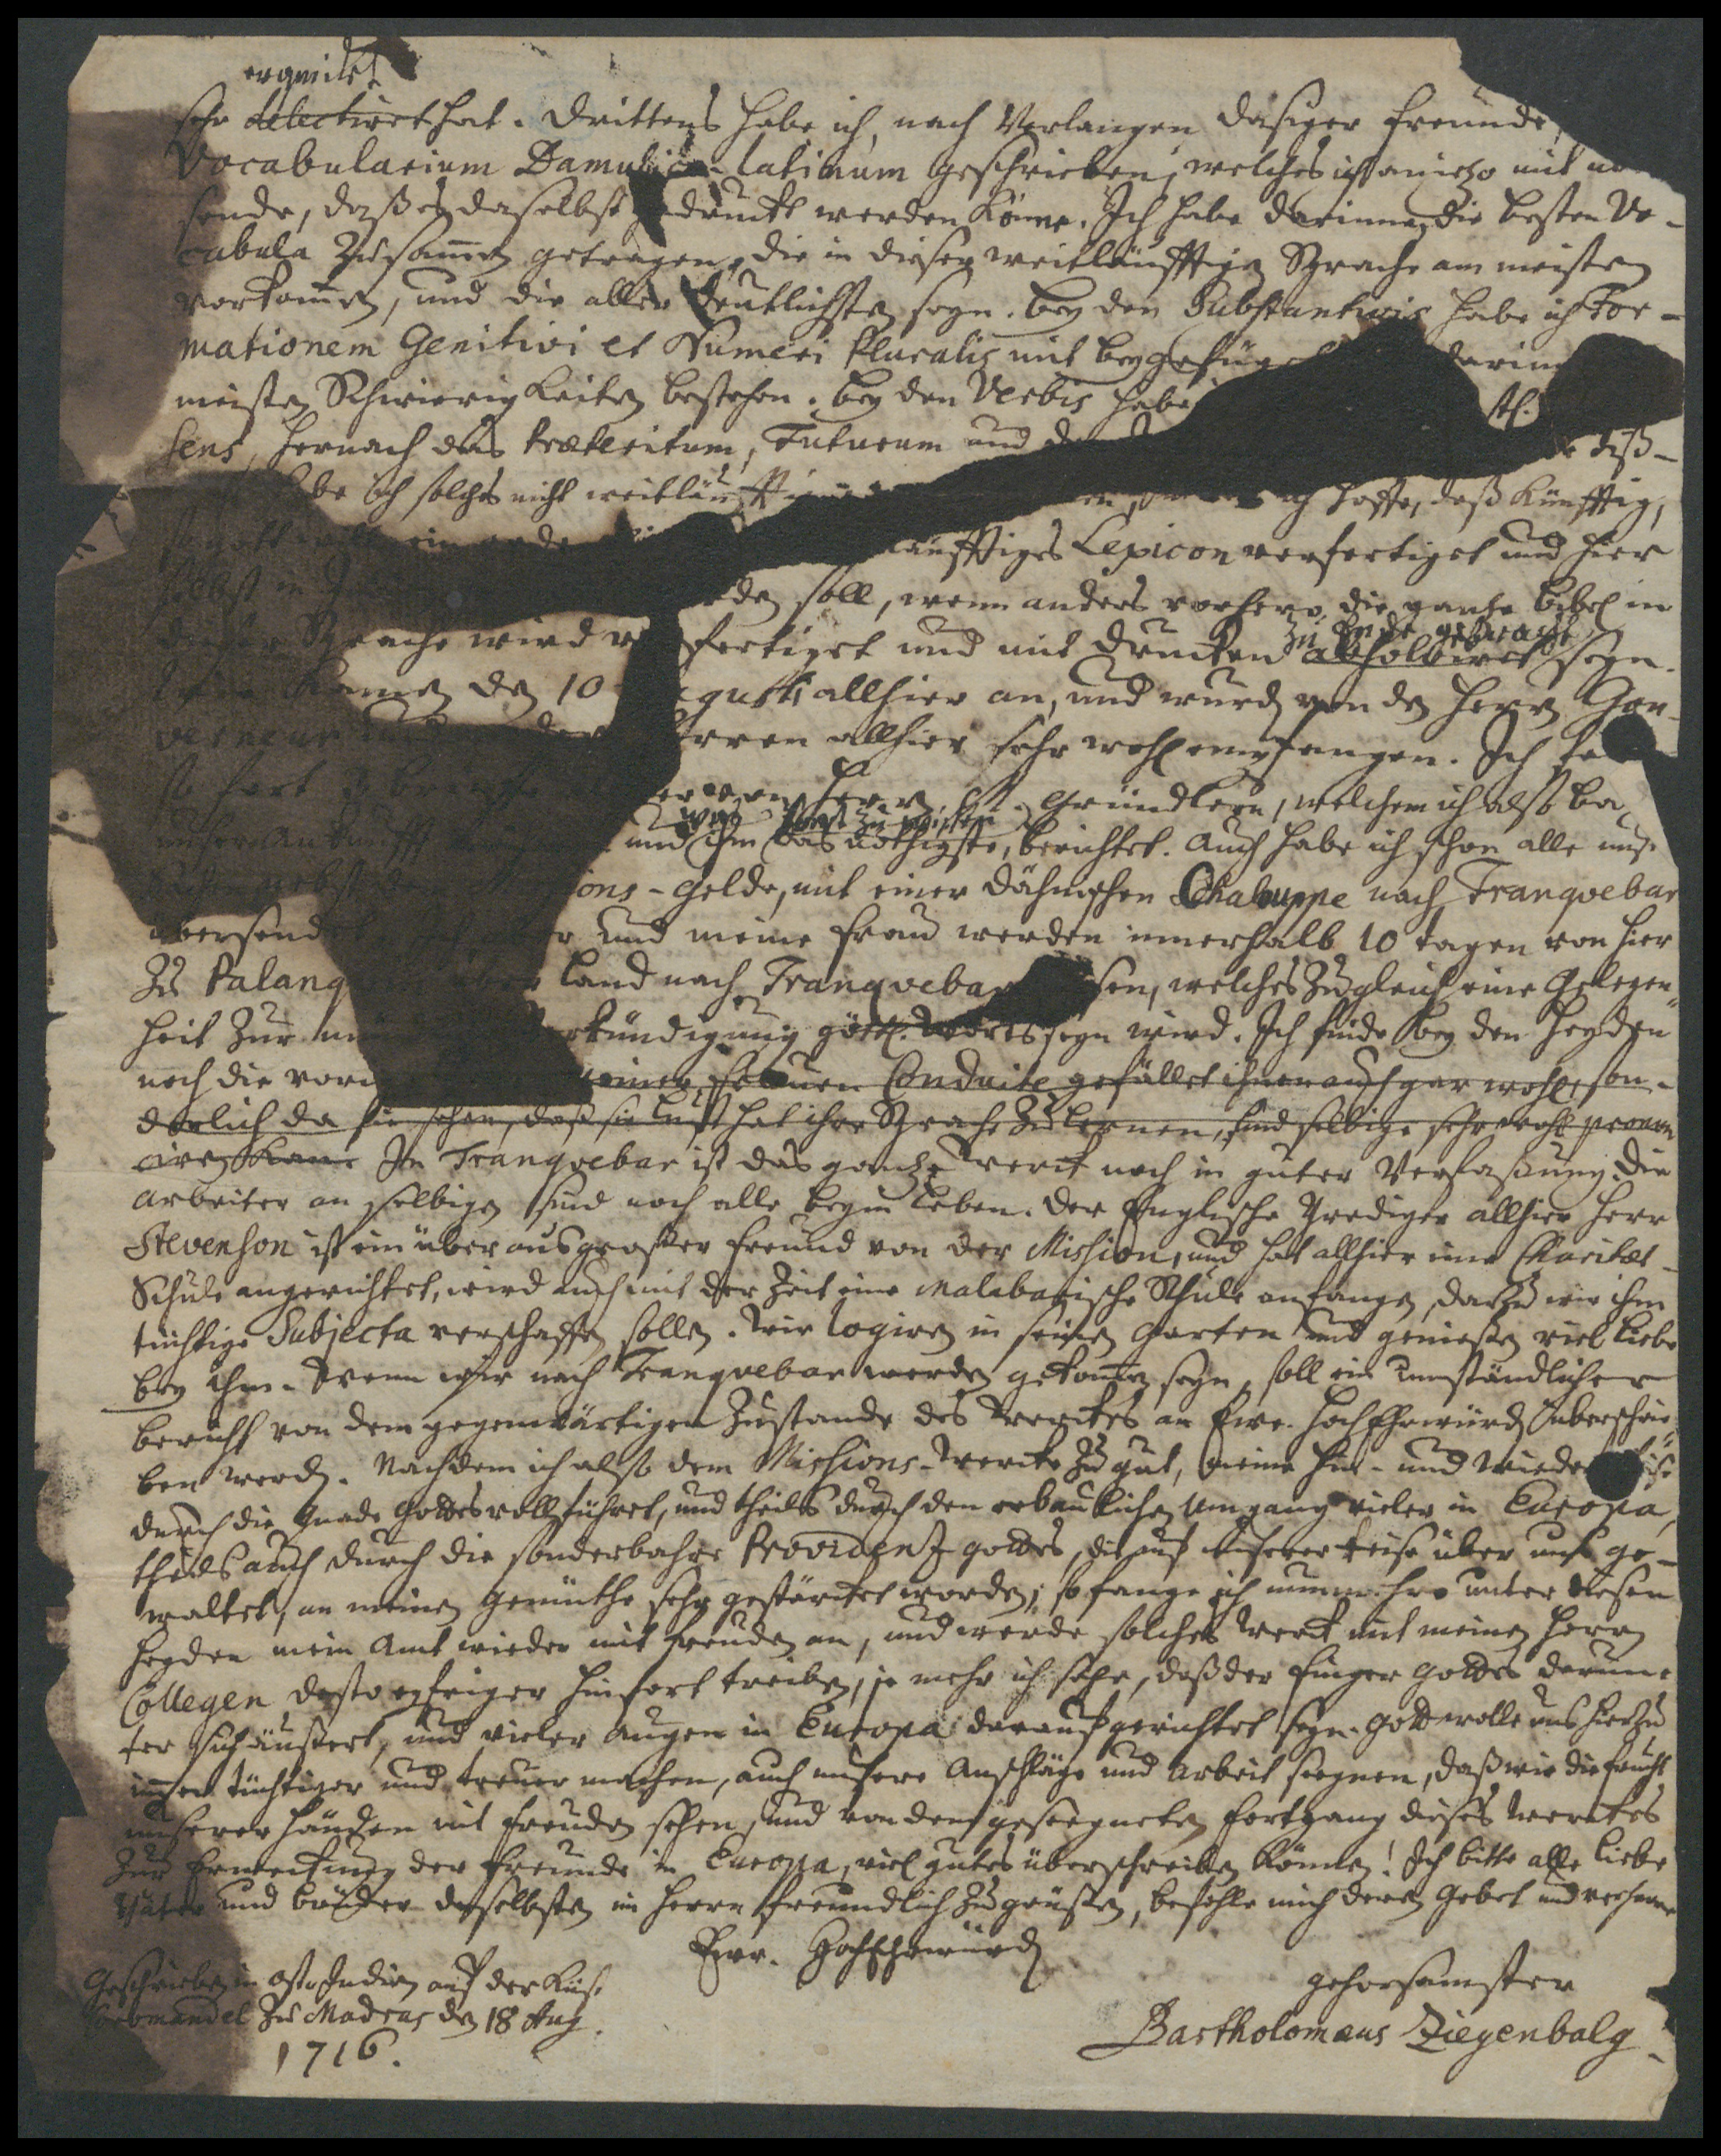 erquicket
sehr delectiret hat. Drittens habe ich, nach Verlangen dasiger Freunde,
Vocabularium Damulico-latinum geschrieben, welches ich anietzo mit
sende, daß es daselbst gedruckt werden könne. Ich habe darinnen die besten Vo-
cabula zusammen getragen, die in dieser weitläufftigen Sprache am meisten
vorkommen, und die aller deutlichsten seyn. Bey den Substantivis habe ich For-
mationem Genitivi et Numeri Pluralis mit beygefüget darin
meisten Schwierigkeiten bestehen. Bey den Verbis habe
sens, hernach das Præteritum, Futurum und diß-
habe ich solches nicht weitläufftig ich hoffe, daß künfftig,
so Gott will, ein läufftiges Lexicon verfertiget und hier
selbst in den soll, wenn anders vorhero die gantze Bibel in
dieser Sprache wird verfertiget und mit Drucken zu Ende gebracht absolviret seyn.
Wir kamen den 10 Augusti allhier an, und wurden von den Herrn Gou-
verneur und andern Herren allhier sehr wohl empfangen. Ich
so fort Herrn Gründlern, welchem ich also bald
unsere Ankunfft und ihm das nöthigste, was sonst zu wissen berichtet. Auch habe ich schon alle uns.
Sachen nebst dem Missions-Gelde, mit einer Dähnischen Chaluppe nach Tranqvebar
übersendet und meine Frau werden innerhalb 10 Tagen von hier
zu Palang Land nach Tranqvebar reisen, welches zugleich eine Gelegen-
heit zur Verkündigung göttl. Worts seyn wird. Ich finde bey den Heyden
noch die vori meiner Frauen Conduite gefället ihnen auch gar wohl, son-
derlich da sie sehen, daß sie Lust hat ihre Sprache zu lernen, und selbige sehr wohl pronun-
ciren kan. In Tranqvebar ist das gantze Werck noch in guter Verfaßung. Die
Arbeiter an selbigen sind noch alle beym Leben. Der Englische Prediger allhier Herr
Stevenson ist ein überaus großer Freund von der Mission, und hat allhier eine Charitæt-
Schule angerichtet, wird auch mit der Zeit eine Malabarische Schule anfangen, darzu wir ihm
tüchtige Subjecta verschaffen sollen. Wir logiren in seinen Garten und genießen viel Liebe
bey ihm. Wenn wir nach Tranqvebar werden gekommen seyn, soll ein umständlicher
Bericht von dem gegenwärtigen Zustande des Werckes an Ewr. HochEhrwürd. überschrie-
ben werden. Nachdem ich also dem Missions-Wercke zu gut, meine Hin- und Wiederreise
durch die Gnade Gottes vollführet, und theils durch den erbaulichen Umgang vieler in Europa,
theils auch durch die sonderbahre Providenz Gottes, die auf unserer Reise über uns ge-
waltet, an meinen Gemüthe sehr gestärcket worden; so fange ich nunmehro unter diesen
Heyden mein Amt wieder mit Freuden an, und werde solches Werck mit meinen Herrn
Collegen desto eyfriger hinfort treiben, je mehr ich sehe, daß der Finger Gottes darun-
ter sich äußert, und vieler Augen in Europa darauf gerichtet seyn. Gott wolle uns hierzu
immer tüchtiger und treuer machen, auch unsere Anschläge und Arbeit seegnen, daß wir die Frucht
unserer Händen mit Freuden sehen, und von den geseegneten Fortgang dieses Werckes
zur Erweckung der Freunde in Europa, viel gutes überschreiben können! Ich bitte alle liebe
Väter und Brüder daselbsten im Herrn freundlich zu grüßen, befehle mich deren Gebet und verharre
Ewr. HochEhrwürd.
Geschrieben in Ost-Indien auf der Küst
gehorsamster
Coromandel zu Madras den 18 Aug.
Bartholomæus Ziegenbalg.
1716.